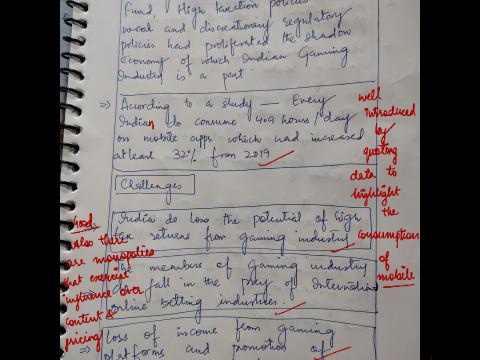 Fund, High taxation policies
weak and discretionary regulatory
policies had proliferated the shadow
economy of which Indian Gaming
Industry is a part
⇒ According to a study — Every
Indian do consume 4.9 hours/day
on mobile apps which had increased
at least 32% from 2019
well
introduced
by
quoting
data to
highlight
the
consumption
of
mobile
Challenges
India do lose the potential of high
tax returns from gaming industry
Good.
Also there
are monopolies
that exercise
influence over
content &
pricing
The members of Gaming industry
fall in the prey of International
online betting industries.
⇒ Loss of income from gaming
platforms and promotion of